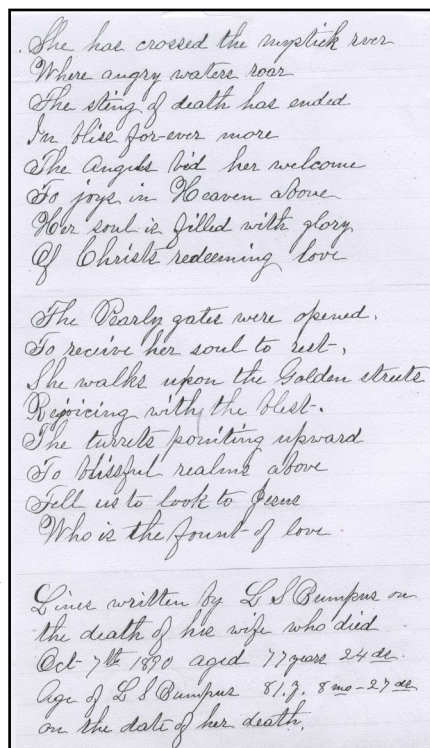 She has crossed the mystick rver
Where angry waters roar
The sting of death has ended
In bliss for-ever more
The Angels bid her welcome
To joys in Heaven above
Her soul is filled with glory
Of Christs redeeming love
The Pearly gates were opened,
To receive her soul to rest,
She walks upon the Golden streets
Rejoicing with the blest.
The turrets pointing upward
To blissful realms above
Tell us to look to Jesus
Who is the fount of love.
Lines written by L S Bumpus on
the death of his wife who died
Oct 7th 1890 aged 77 years 24 ds.
Age of L S Bumpus 81.y. 8 mo-27 ds
on the date of her death.